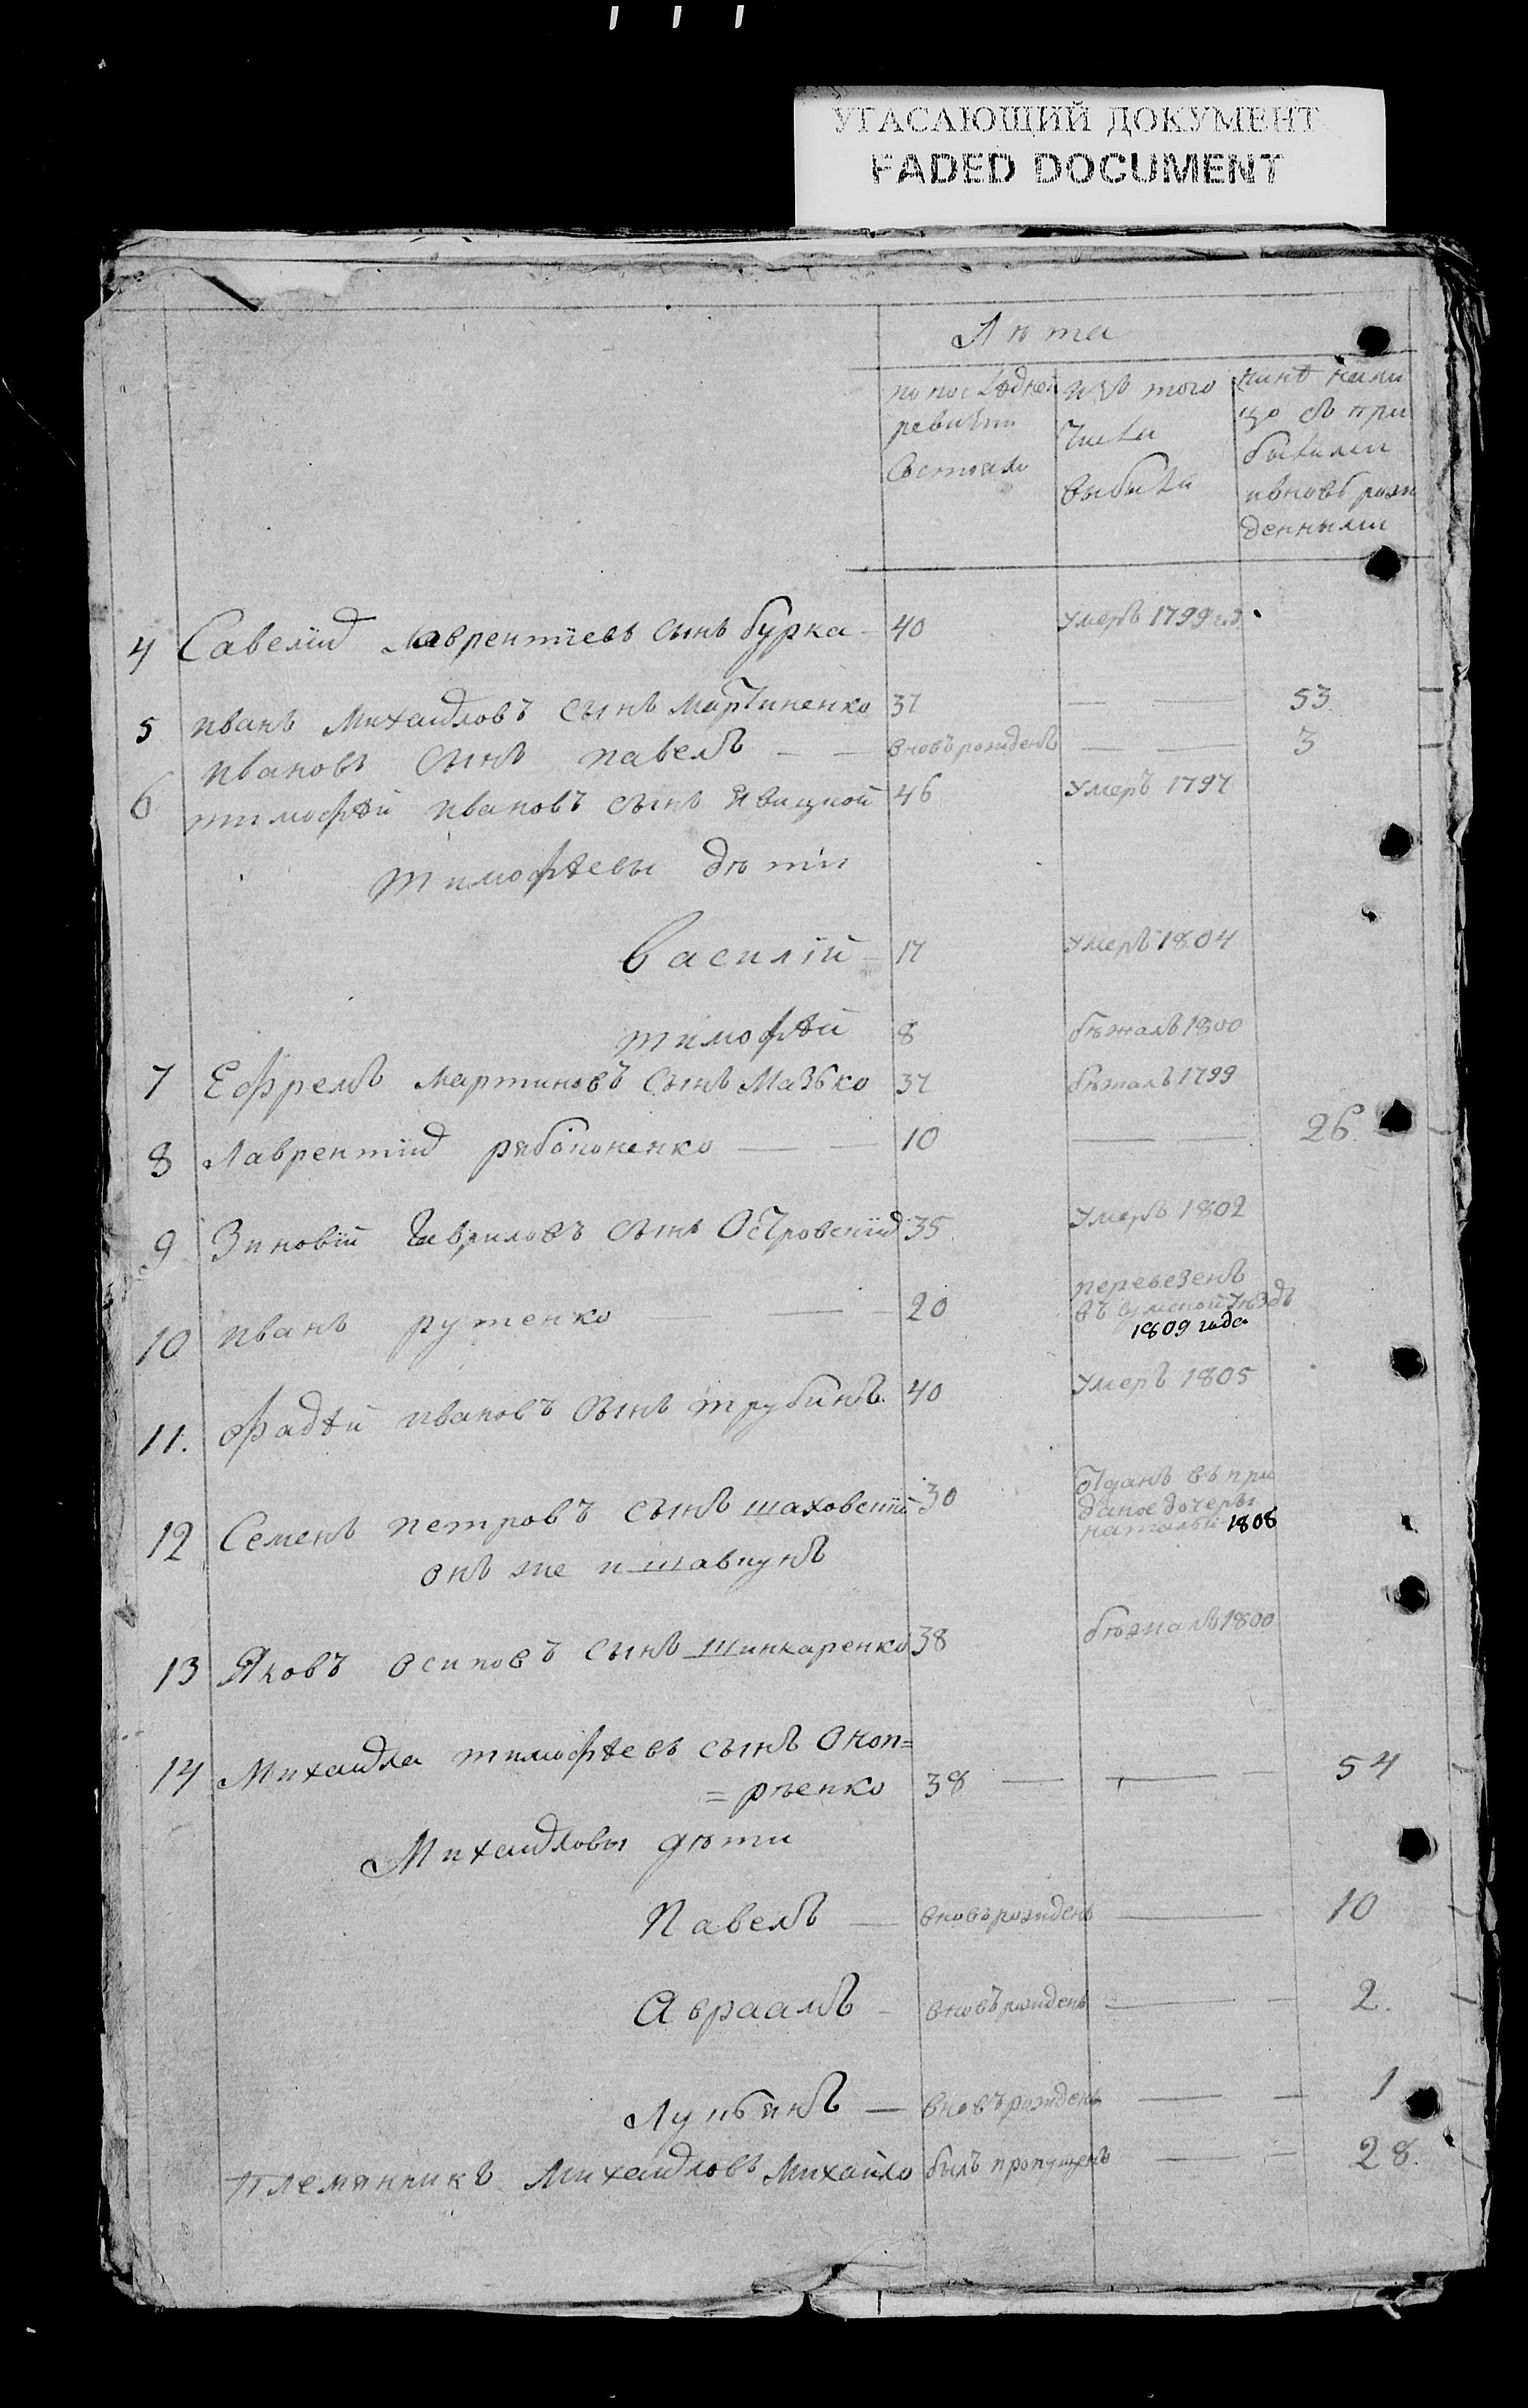 УГАСАЮЩИЙ ДОКУМЕНТ
FADED DOCUMENT
Лѣта
по последней ревизiи состояло
изъ того числа выбыло
нынѣ налицо съ прибылыми и вновь рожденными
4 Савелiй Лаврентiевъ сынъ бурка 40 умеръ 1799 год
5 иванъ Михайловъ сынъ Мартиненко 37 — — 53
ивановъ сынъ павелъ — — вновъ рожденъ — — 3
6 тимофѣй ивановъ сынъ 46 умеръ 1797
тимофѣевы дѣти
василiй 17 умеръ 1804
тимофѣй 8 бѣжалъ 1800
7 Ефремъ мартиновъ сынъ Мазько 37 бѣжалъ 1799
8 Лаврентiй рябоконенко — — 10 — — 26
9 Зиновiй Гавриловъ сынъ Островскiй 35 умеръ 1802
10 иванъ рутенко — — 20 перевезенъ
въ сумской уѣздъ
1809 года
11. Фадѣй ивановъ сынъ трубинъ 40 умеръ 1805
12 Семенъ петровъ сынъ шаховскiй 30 отданъ въ при
даное дочеры
натальи 1808
онъ же и шавкунъ
13 Яковъ осиповъ сынъ шинкаренко 38 бѣжалъ 1800
14 Михайла тимофѣевъ сынъ Окоп=
=рѣенко 38 — — — 54
Михайловы дѣти
Павелъ — вновъ рожденъ — 10
Авраамъ — вновъ рожденъ — — 2.
Лукьянъ — вновъ рожденъ — — 1
племянникъ Михайловъ Михайло былъ пропущенъ — — 28.